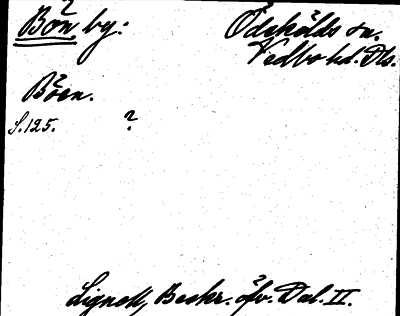 Bön by:
Ödskölds sn.
Vedbo hd. Dls.
Böen.
S. 125. ?
Lignell, Beskr. öfv. Dal. II.